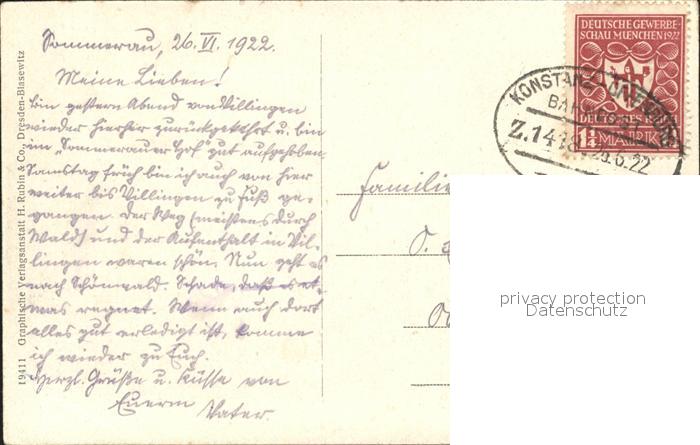 Sommerau, 26. VI. 1922.
Meine Lieben!
Bin gestern Abend von Villingen
wieder hierher zurückgekehrt u. bin
im "Sommerauer Hof" gut aufgehoben.
Samstag früh bin ich auch von hier
weiter bis Villingen zu Fuß ge-
gangen. Der Weg (meistens durch
Wald) und der Aufenthalt in Vil-
lingen waren schön. Nun geht es
nach Schönwald. Schade, daß es et-
was regnet. Wenn auch dort
alles gut erledigt ist, komme
ich wieder zu Euch.
Herzl. Grüße u. Küsse von
Euerm Vater.
19411 Graphische Verlagsanstalt H. Rubin & Co., Dresden-Blasewitz
DEUTSCHE GEWERBE-
SCHAU MUENCHEN 1922
DEUTSCHES REICH
1¼ MARK
KONSTANZ OFFENBURG
BAHNPOST
Z.1418 26.6.22
Familie
privacy protection
Datenschutz